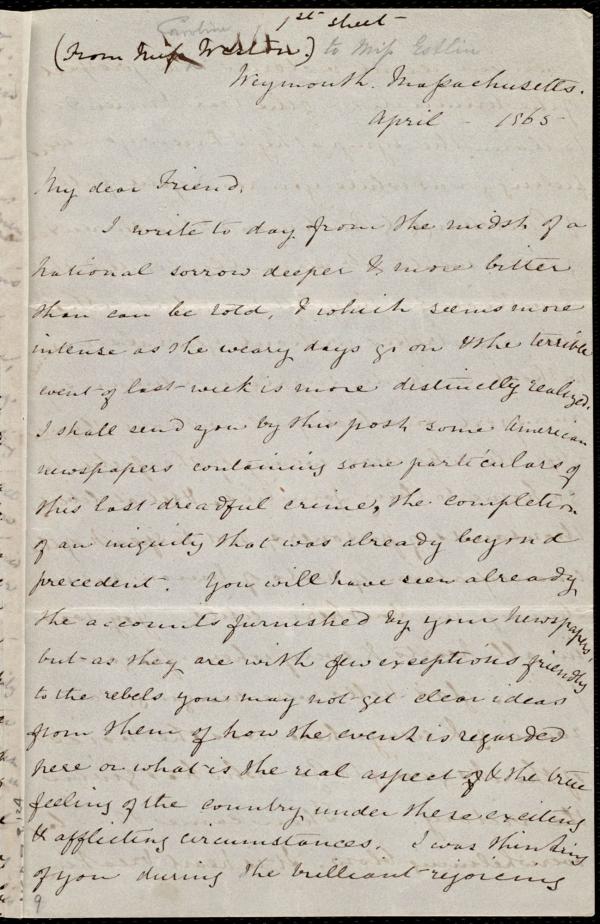 Caroline
1st sheet
(From Miss Weston.) to Miss Estlin
Weymouth. Massachusetts.
April - 1865
My dear Friend,
I write to day from the midst of a
national sorrow deeper & more bitter
than can be told, & which seems more
intense as the weary days go on & the terrible
event of last week is more distinctly realized.
I shall send you by this post some American
newspapers containing some particulars of
this last dreadful crime, the completion
of an iniquity that was already beyond
precedent. You will have seen already
the accounts furnished by your newspapers,
but as they are with few exceptions friendly
to the rebels you may not get clear ideas
from them of how the event is regarded
here or what is the real aspect & the true
feeling of the country under these exciting
& afflicting circumstances. I was thinking
of you during the brilliant rejoicing
9